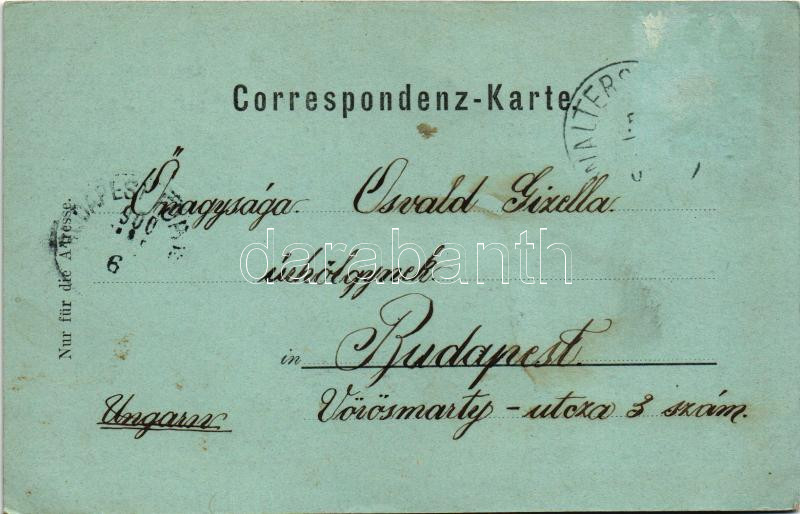 Correspondenz-Karte
MALTERS
BUDAPEST
6
Őnagysága Osvald Gizella
úrhölgynek
in Budapest.
Ungarn
Vörösmarty-utcza 3 szám.
Nur für die Adresse.
darabanth